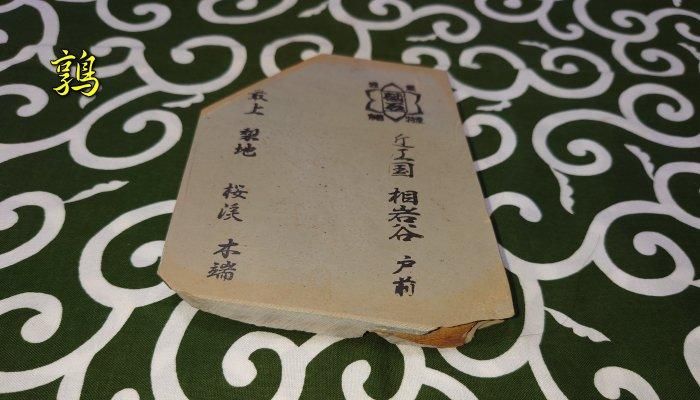 鶉
近江国 相岩谷 戸前
最上 梨地 桜渓 木端